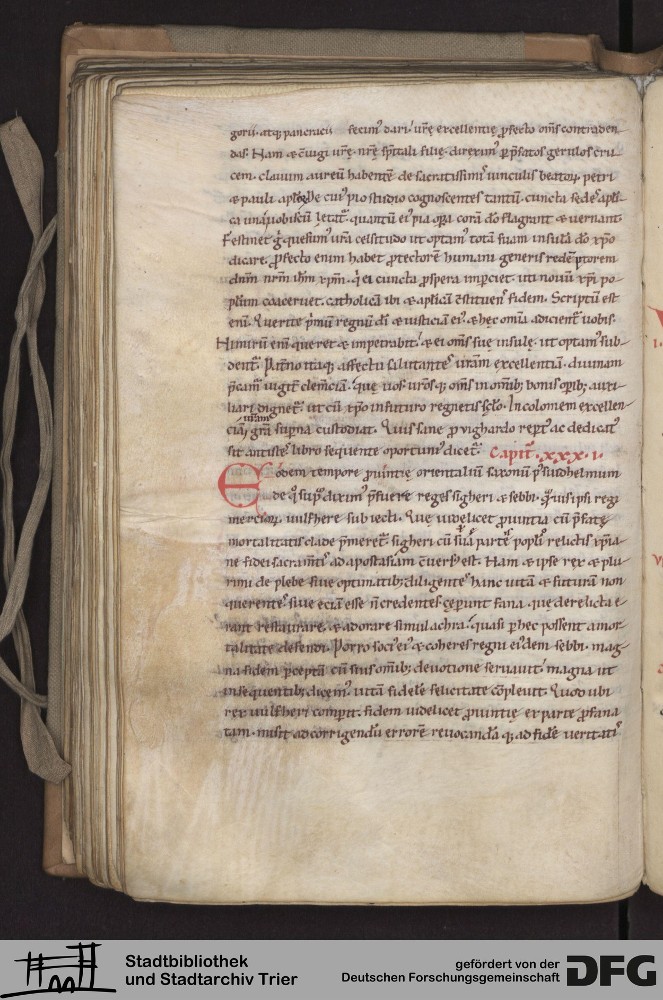 gorii· atq; pancracii fecim' dari· urę excellentię p̱fecto om̅s contraden-
das. Nam & c̅iugi urę· nrę sp̅itali filię· direxim' p̱ p̅fatos gerulos cru-
cem· clauim aureu̅ habente̅ de sacratissimis uinculis beatoꝝ petri
& pauli aplꝝ. De cui' pio studio cognoscentes tantu̅· cuncta sedes apli-
ca una uobiscu̅ letat̅· quantu̅ ei' pia opa cora̅ do̅ flagrant & uernant.
Festinet g̊ quesum' ura̅ celsitudo ut optam' tota̅ sua̅ insula̅ do̅ xp̅o
dicare. p̱fecto enim habet p̱tectore̅ humani generis rede̅ptorem
dn̅m nr̅m ihm̅ xp̅m· q̇ ei cuncta p̱spera imp̱ciet· uti nouu̅ xp̅i po-
plu̅m coaceruet· catholica̅ ibi & aplica̅ c̅stituens fidem. Scriptu̅ est
eni̅. Querite p̅mu̅ regnu̅ di̅ & iusticia̅ ei'· & hęc om̅ia adicient̅ uobis.
Nimiru̅ eni̅ queret & impetrabit· & ei om̅s suę insulę· ut optam' sub-
dent̅. Pat̅no itaq; affectu salutantes uram̅ excellentia̅· diuinam
p̅cam̅ iugit̅ clem̅cia̅· quę uos· uros q; om̅s in om̅ib; bonis opib; auxi-
liari dignet̅· ut cu̅ xp̅o in futuro regnetis sc̅lo. Incolomem excellen-
uram
cia̅ gr̅a supna custodiat. Quis sane p̱ uighardo rept' ac dedicat'
sit antistes libro sequente oportuni' dicet̅. Capit̅. xxx.i.
Eodem tempore p̱uintię orientaliu̅ saxonu̅ p's suidhelmum
de q̊ sup̅ diximus p̅fuere reges sigheri & sebbi· q̅uis ipsi regi
mercioꝝ uulfhere subiecti. Quę uidelicet p̱uintia cu̅ p̅fatę
mortalitatis clade p̅meret̅· sigheri cu̅ sua parte popli relictis xp̅ia-
nę fidei sacram̅tis ad apostasiam c̅uersus est. Nam & ipse rex & plu-
rimi de plebe siue optimatib; diligentes hanc uita̅ & futura̅ non
querentes siue ecia̅ esse n̅ credentes cęperunt fana· quę derelicta e-
rant restaurare· & adorare simulachra· quasi p̱ hęc possent a mor-
talitate defendi. Porro soci' ei' & coheres regni eidem sebbi· mag-
na fidem p̱ceptu̅ cu̅ suis om̅ib; deuotione seruauit· magna ut
insequentib; dicem' uita̅ fidele̅ felicitate co̅pleuit. Quod ubi
rex uulfheri comp̱it· fidem uidelicet p̱uintię ex parte p̱fana-
tam· misit ad corrigendu̅ errore̅ reuocanda̅ q; ad fide̅ ueritatis
Stadtbibliothek
und Stadtarchiv Trier
gefördert von der
Deutschen Forschungsgemeinschaft
DFG